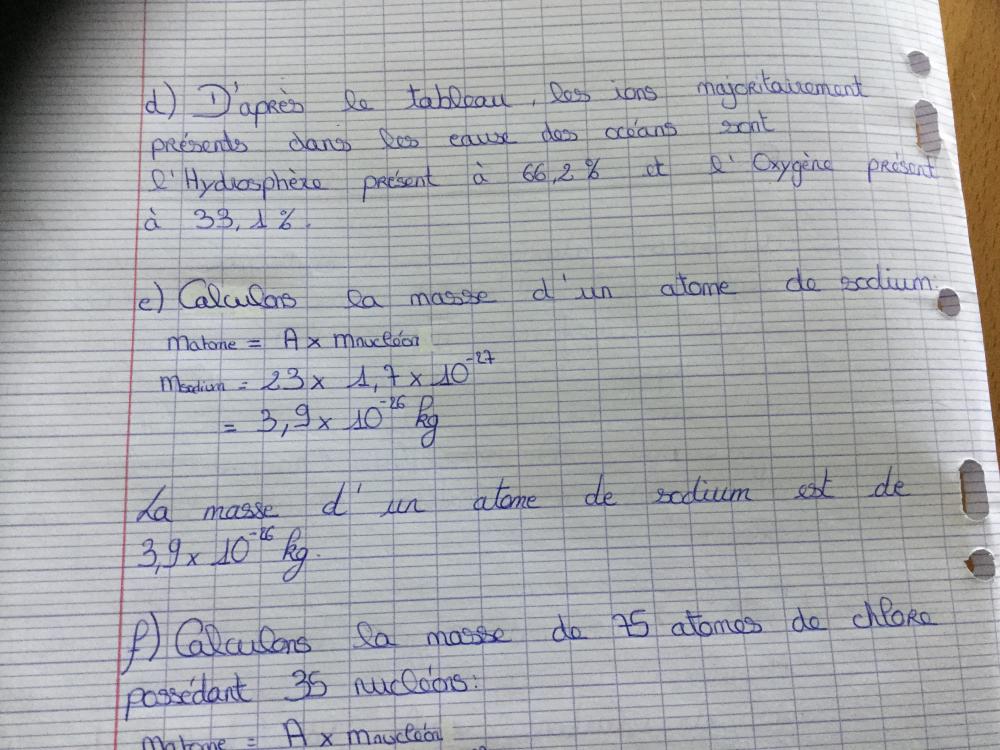 d) D'après le tableau, les ions majoritairement
présents dans les eause des océans sont
l'Hydrosphère présent à 66,2% et l'Oxygène présent
à 33,1%.
e) Calculons la masse d'un atome de sodium:
matome = A x mnucléon
msodium = 23 x 1,7 x 10⁻²⁷
= 3,9 x 10⁻²⁶ kg
La masse d'un atome de sodium est de
3,9 x 10⁻²⁶ kg.
f) Calculons la masse de 75 atomes de chlore
possédant 35 nucléons:
matome = A x mnucléon